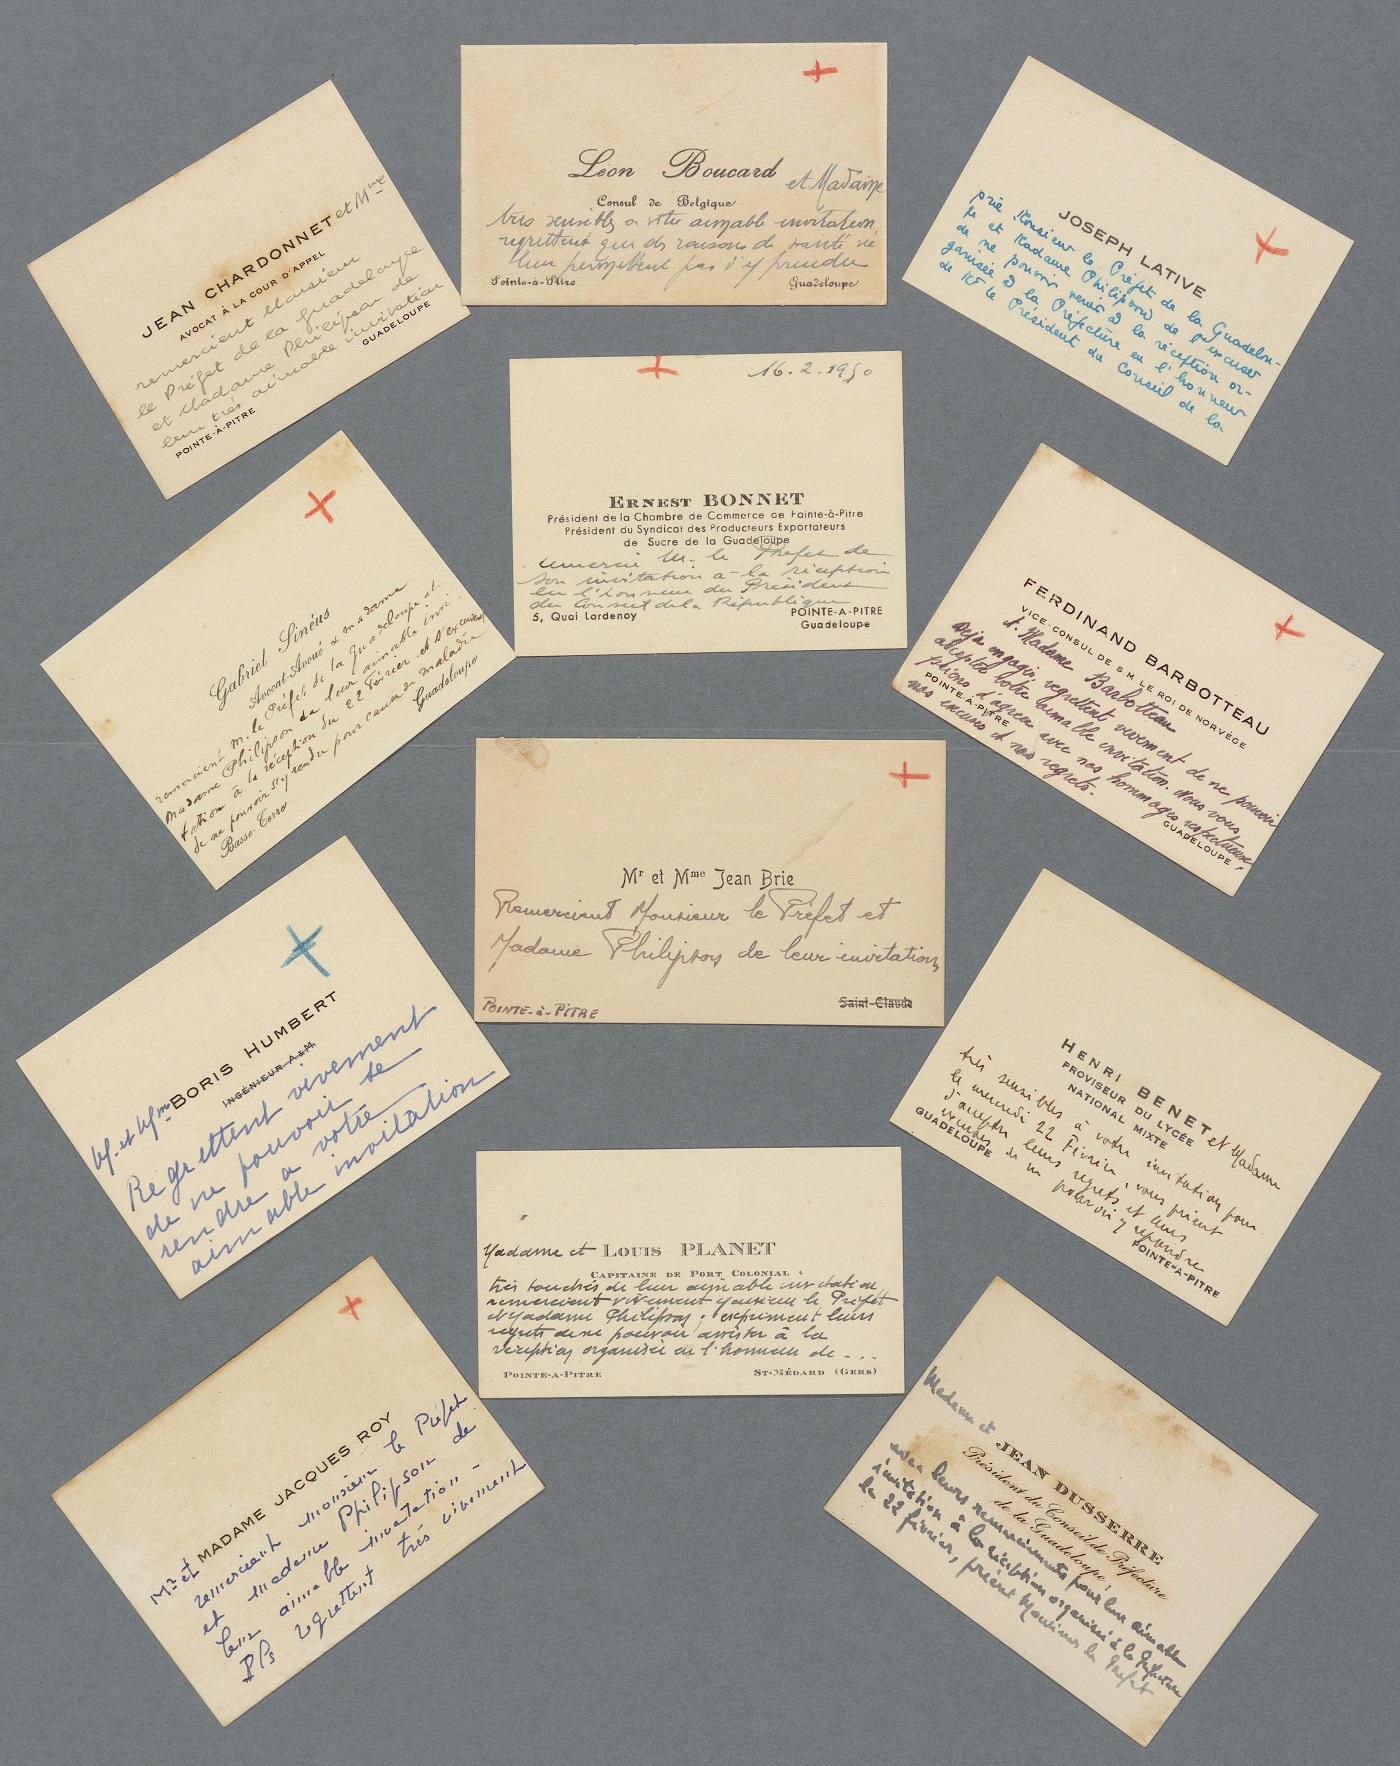 JEAN CHARDONNET et Mme
AVOCAT À LA COUR D'APPEL
remercient Monsieur
le Préfet de la Guadeloupe
et Madame Philipson de
leur très aimable invitation
POINTE-À-PITRE
GUADELOUPE
Léon Boucard et Madame
Consul de Belgique
très sensibles à votre aimable invitation,
regrettent que des raisons de santé ne
leur permettent pas d'y prendre
Pointe-à-Pitre
Guadeloupe
JOSEPH LATIVE
prie Monsieur le Préfet de la Guadelou-
pe et Madame Philipson de l'excuser
de ne pouvoir venir à la réception or-
ganisée à la Préfecture en l'honneur
de Mr le Président du Conseil de la
Gabriel Sinéus
Avocat-Avoué & madame
remercient M. le Préfet de la Guadeloupe et
Madame Philipson de leur aimable invi-
tation à la réception du 22 Février et s'excusent
de ne pouvoir s'y rendre pour cause de maladie
Basse-Terre
Guadeloupe
16.2.1950
ERNEST BONNET
Président de la Chambre de Commerce de Pointe-à-Pitre
Président du Syndicat des Producteurs Exportateurs
de Sucre de la Guadeloupe
remercie M. le Préfet de
son invitation à la réception
en l'honneur du Président
du Conseil de la République
5, Quai Lardenoy
POINTE-A-PITRE
Guadeloupe
FERDINAND BARBOTTEAU
VICE-CONSUL DE S.M. LE ROI DE NORVÈGE
et Madame Barbotteau
Déjà engagés, regrettent vivement de ne pouvoir
accepter votre aimable invitation. Nous vous
prions d'agréer avec nos hommages respectueux,
nos excuses et nos regrets.
POINTE-A-PITRE
GUADELOUPE
Mr et Mme Jean Brie
Remercient Monsieur le Préfet et
Madame Philipson de leur invitation
POINTE-à-PITRE
Saint-Claude
M. et Mme BORIS HUMBERT
INGÉNIEUR A&M
Regrettent vivement
de ne pouvoir se
rendre à votre
aimable invitation
HENRI BENET et Madame
PROVISEUR DU LYCÉE
NATIONAL MIXTE
très sensibles à votre invitation pour
le mercredi 22 Février, vous prient
d'accepter leurs regrets et leurs
excuses de ne pouvoir y répondre
GUADELOUPE
POINTE-A-PITRE
Madame et LOUIS PLANET
CAPITAINE DE PORT COLONIAL
très touchés de leur aimable invitation,
remercient vivement Monsieur le Préfet
et Madame Philipson ; expriment leurs
regrets de ne pouvoir assister à la
réception organisée en l'honneur de ...
POINTE-A-PITRE
ST-MÉDARD (GERS)
Mr et MADAME JACQUES ROY
remercient monsieur le Préfet
et madame Philipson de
leur aimable invitation -
Ils regrettent très vivement
Madame et JEAN DUSSERRE
Président du Conseil de Préfecture
de la Guadeloupe
avec leurs remerciements pour leur aimable
invitation à la réception organisée à la Préfecture
le 22 février, prient Monsieur le Préfet